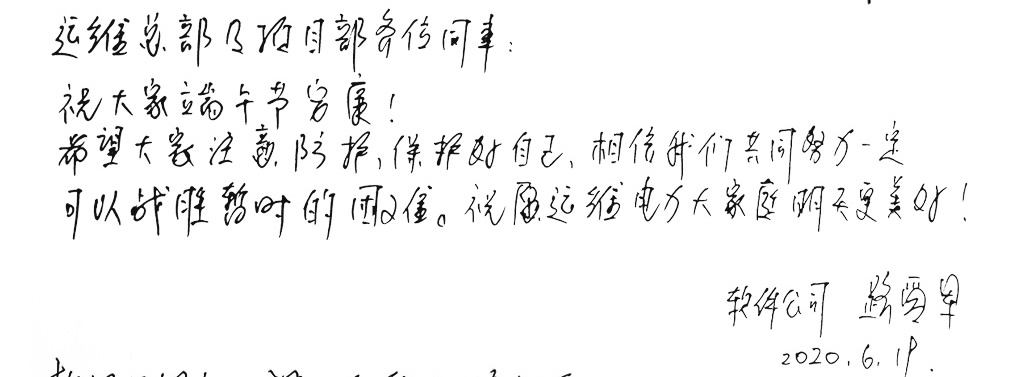 运维总部及项目部各位同事：
祝大家端午节安康！
希望大家注意防护、保护好自己、相信我们共同努力一定
可以战胜暂时的困难。祝愿运维电力大家庭明天更美好！
软件公司 路
2020.6.19.